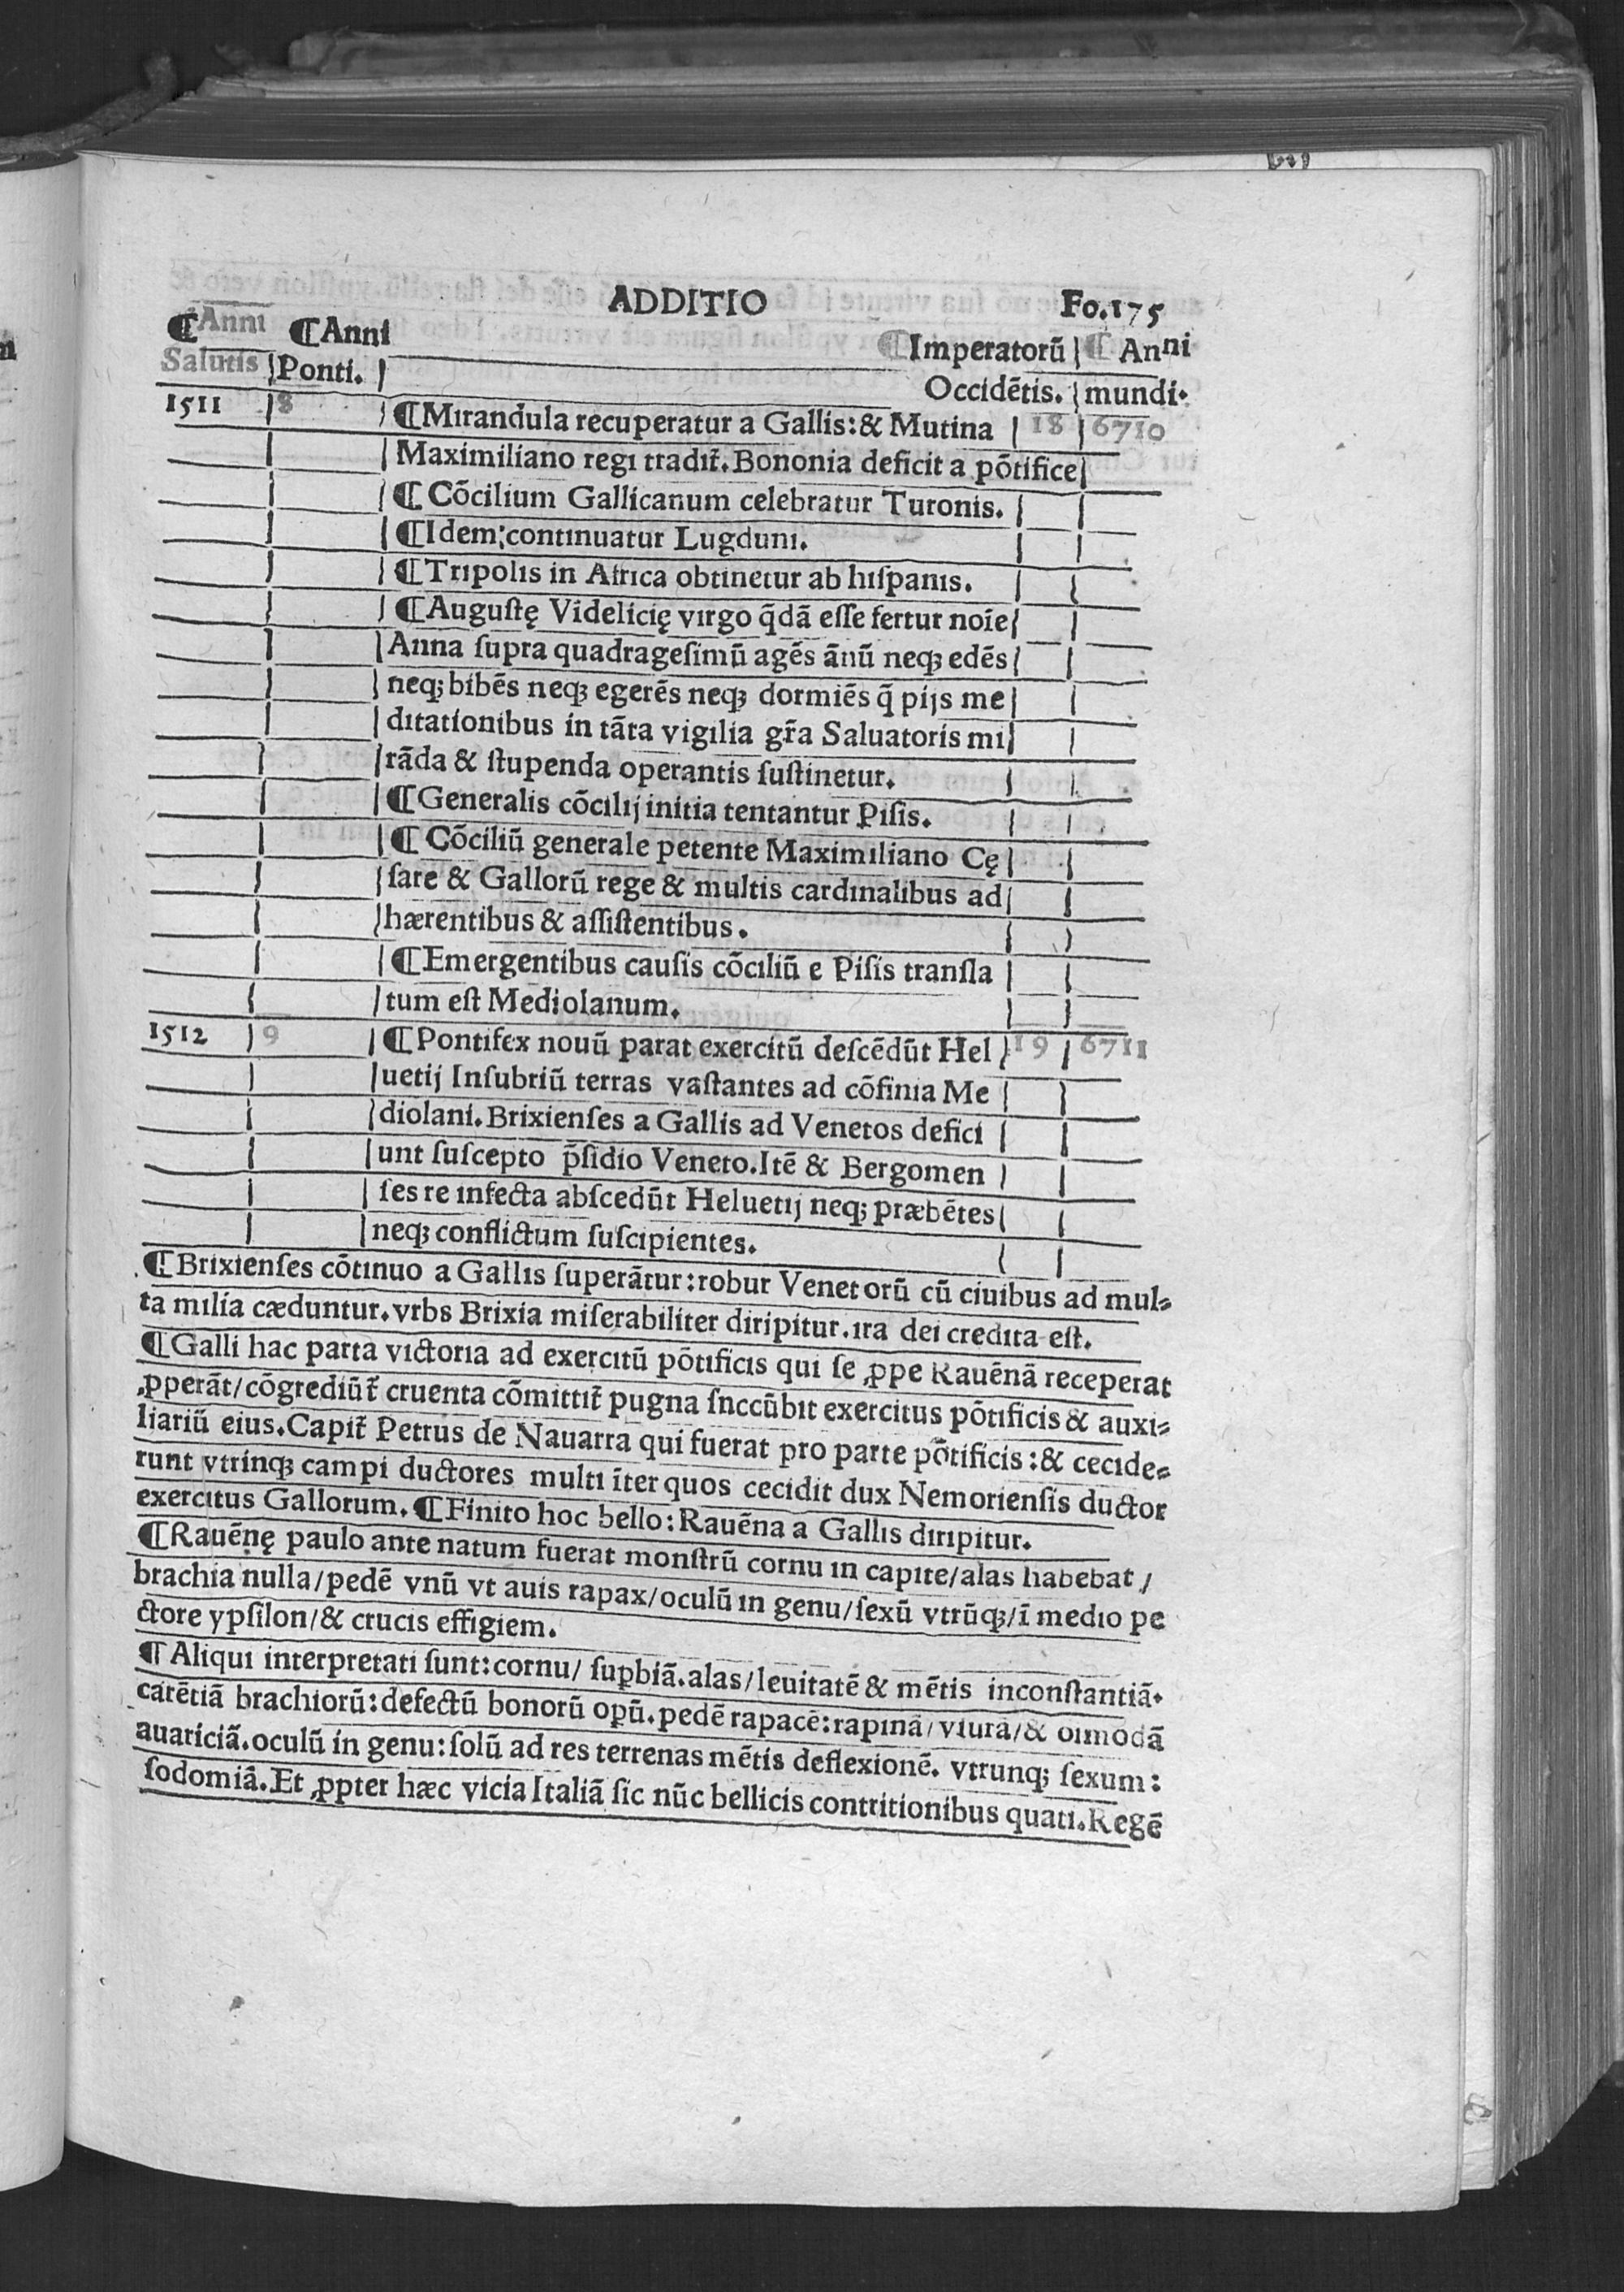 ADDITIO Fo.175
¶Anni ¶Anni ¶Imperatorū ¶Anni
Salutis Ponti. Occidētis. mundi.
1511 8 ¶Mirandula recuperatur a Gallis:& Mutina 18 6710
Maximiliano regi tradit̄. Bononia deficit a pōtifice
¶Cōcilium Gallicanum celebratur Turonis.
¶Idem:continuatur Lugduni.
¶Tripolis in Africa obtinetur ab hiſpanis.
¶Auguſtę Videlicię virgo q̄dā eſſe fertur noīe
Anna ſupra quadrageſimū agēs ānū neqꝫ edēs
neqꝫ bibēs neqꝫ egerēs neqꝫ dormiēs q̄ pijs me
ditationibus in tāta vigilia gr̄a Saluatoris mi
rāda & ſtupenda operantis ſuſtinetur.
¶Generalis cōcilij initia tentantur Piſis.
¶Cōciliū generale petente Maximiliano Cę
ſare & Gallorū rege & multis cardinalibus ad
hærentibus & aſſiſtentibus.
¶Emergentibus cauſis cōciliū e Piſis tranſla
tum eſt Mediolanum.
1512 9 ¶Pontifex nouū parat exercitū deſcēdūt Hel 19 6711
uetij Inſubriū terras vaſtantes ad cōfinia Me
diolani. Brixienſes a Gallis ad Venetos defici
unt ſuſcepto p̄ſidio Veneto. Itē & Bergomen
ſes re infecta abſcedūt Heluetij neqꝫ præbētes
neqꝫ conflictum ſuſcipientes.
¶Brixienſes cōtinuo a Gallis ſuperātur:robur Venetorū cū ciuibus ad mul⸗
ta milia cæduntur. vrbs Brixia miſerabiliter diripitur. ira dei credita eſt.
¶Galli hac parta victoria ad exercitū pōtificis qui ſe ꝓpe Rauēnā receperat
ꝓperāt/cōgrediūt̄ cruenta cōmittit̄ pugna ſnccūbit exercitus pōtificis & auxi⸗
liariū eius. Capit̄ Petrus de Nauarra qui fuerat pro parte pōtificis:& cecide⸗
runt vtrinqꝫ campi ductores multi īter quos cecidit dux Nemorienſis ductor
exercitus Gallorum. ¶Finito hoc bello:Rauēna a Gallis diripitur.
¶Rauēnę paulo ante natum fuerat monſtrū cornu in capite/alas habebat/
brachia nulla/pedē vnū vt auis rapax/oculū in genu/ſexū vtrūqꝫ/ī medio pe
ctore ypſilon/& crucis effigiem.
¶Aliqui interpretati ſunt:cornu/ ſuꝑbiā. alas/leuitatē & mētis inconſtantiā.
carētiā brachiorū:defectū bonorū opū. pedē rapacē:rapinā/vſurā/& oīmodā
auariciā. oculū in genu:ſolū ad res terrenas mētis deflexionē. vtrunqꝫ ſexum:
ſodomiā. Et ꝓpter hæc vicia Italiā ſic nūc bellicis contritionibus quati. Regē